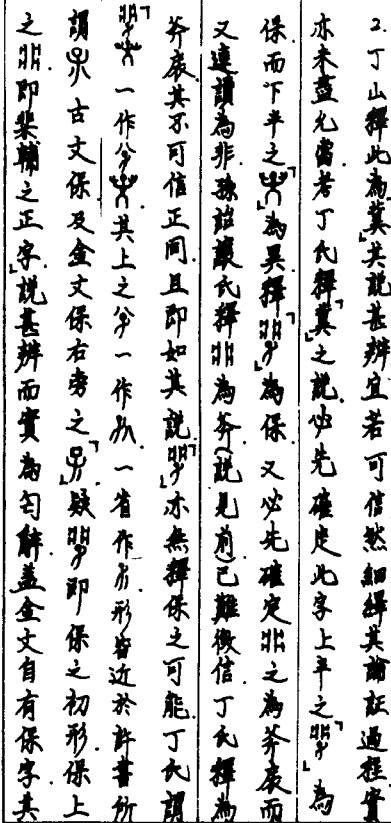 2.丁山釋此為「冀」其說甚辨宜若可信然細繹其論証過程實
亦未盡允當若丁氏釋「冀」之說必先確定此字上半之「」為
保而下半之「」為異釋「」為保又必先確定非之為斧扆而
又連讀為非孫詒讓氏釋非為斧(說見前)已難徵信丁氏釋為
斧扆其不可信正同且即如其說「」亦無釋保之可能丁氏謂
「一作其上之一作一省作形皆近於許書所
謂古文保及金文保右旁之「」疑即保之初形保上
之非即棐輔之正字」說甚辨而實為勻辭蓋金文自有保字其